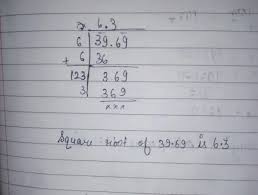 6.3
6 | 39.69
+ 6 | 36
123 | 3.69
3 | 369
xxx
Square root of 39.69 is 6.3